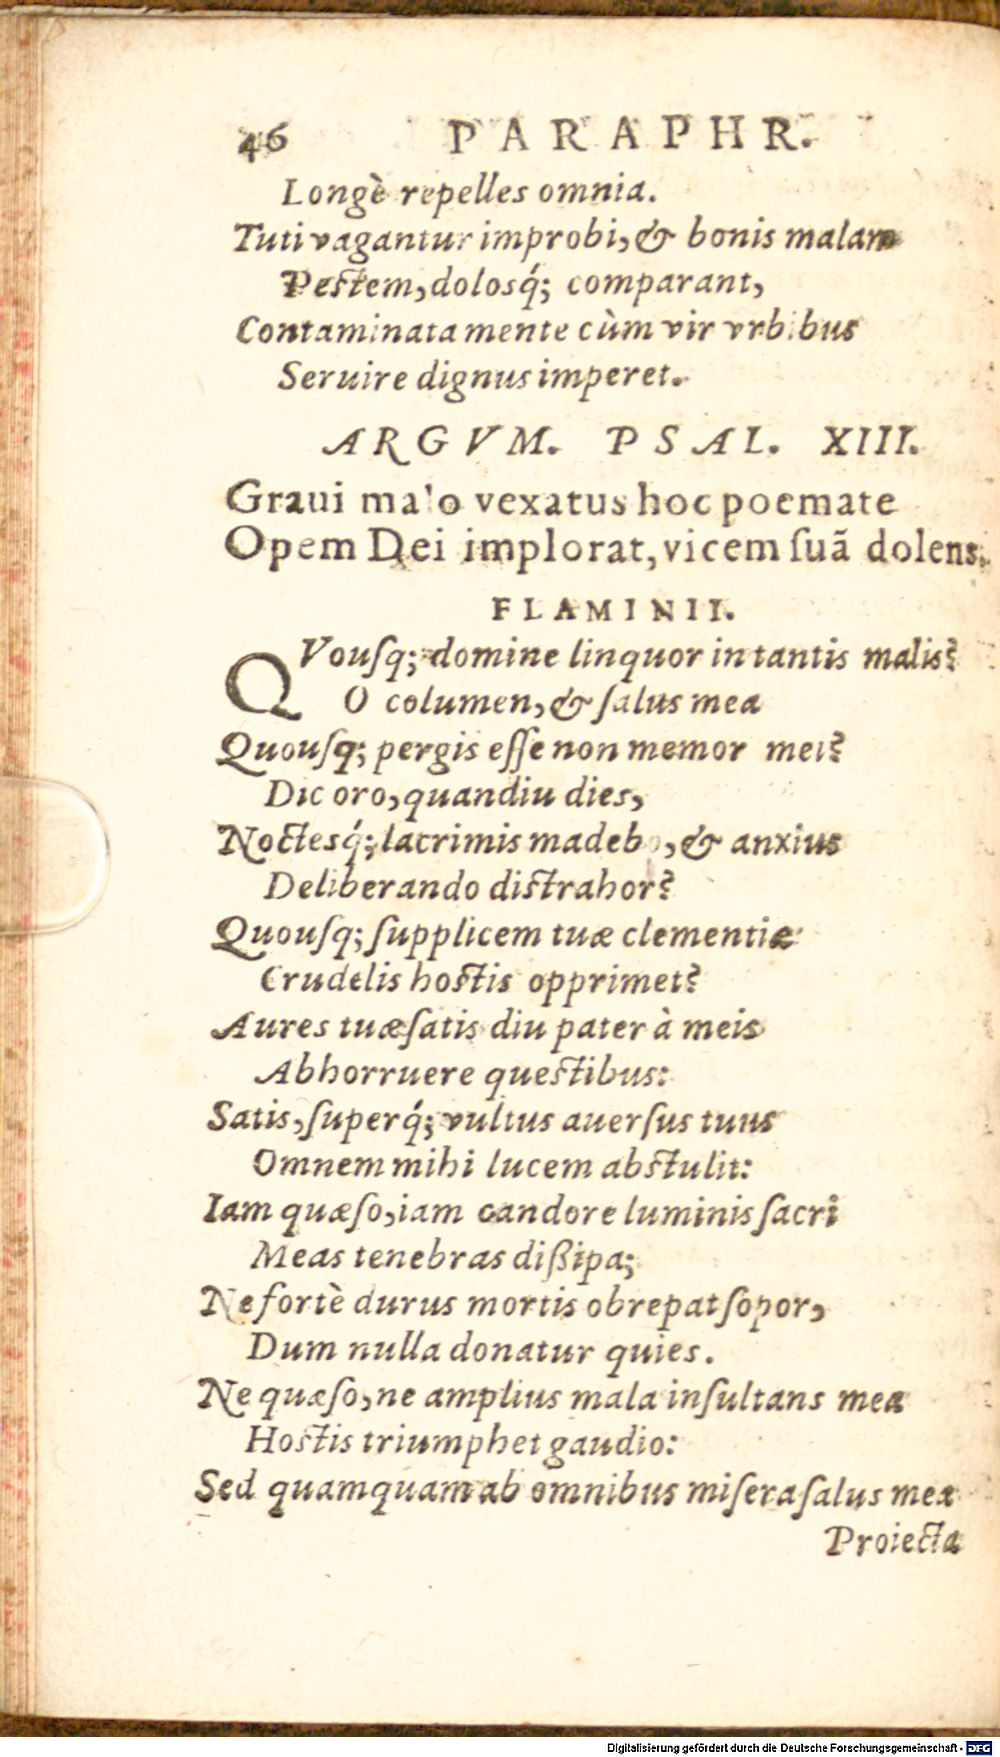 46 PARAPHR.
Longè repelles omnia.
Tuti vagantur improbi, & bonis malam
Pestem, dolosq́; comparant,
Contaminata mente cùm vir vrbibus
Seruire dignus imperet.
ARGVM. PSAL. XIII.
Graui malo vexatus hoc poemate
Opem Dei implorat, vicem ſuã dolens.
FLAMINII.
QVouſq; domine linquor in tantis malis?
O columen, & ſalus mea
Quouſq; pergis eſſe non memor mei?
Dic oro, quandiu dies,
Noctesq́; lacrimis madebo, & anxius
Deliberando distrahor?
Quouſq; ſupplicem tuæ clementiæ
Crudelis hostis opprimet?
Aures tuæ ſatis diu pater à meis
Abhorruere questibus:
Satis, ſuperq́; vultus auerſus tuus
Omnem mihi lucem abstulit:
Iam quæſo, iam candore luminis ſacri
Meas tenebras dißipa;
Ne fortè durus mortis obrepat ſopor,
Dum nulla donatur quies.
Ne quæſo, ne amplius mala inſultans mea
Hostis triumphet gaudio:
Sed quamquam ab omnibus miſera ſalus mea
Proiecta
Digitalisierung gefördert durch die Deutsche Forschungsgemeinschaft - DFG